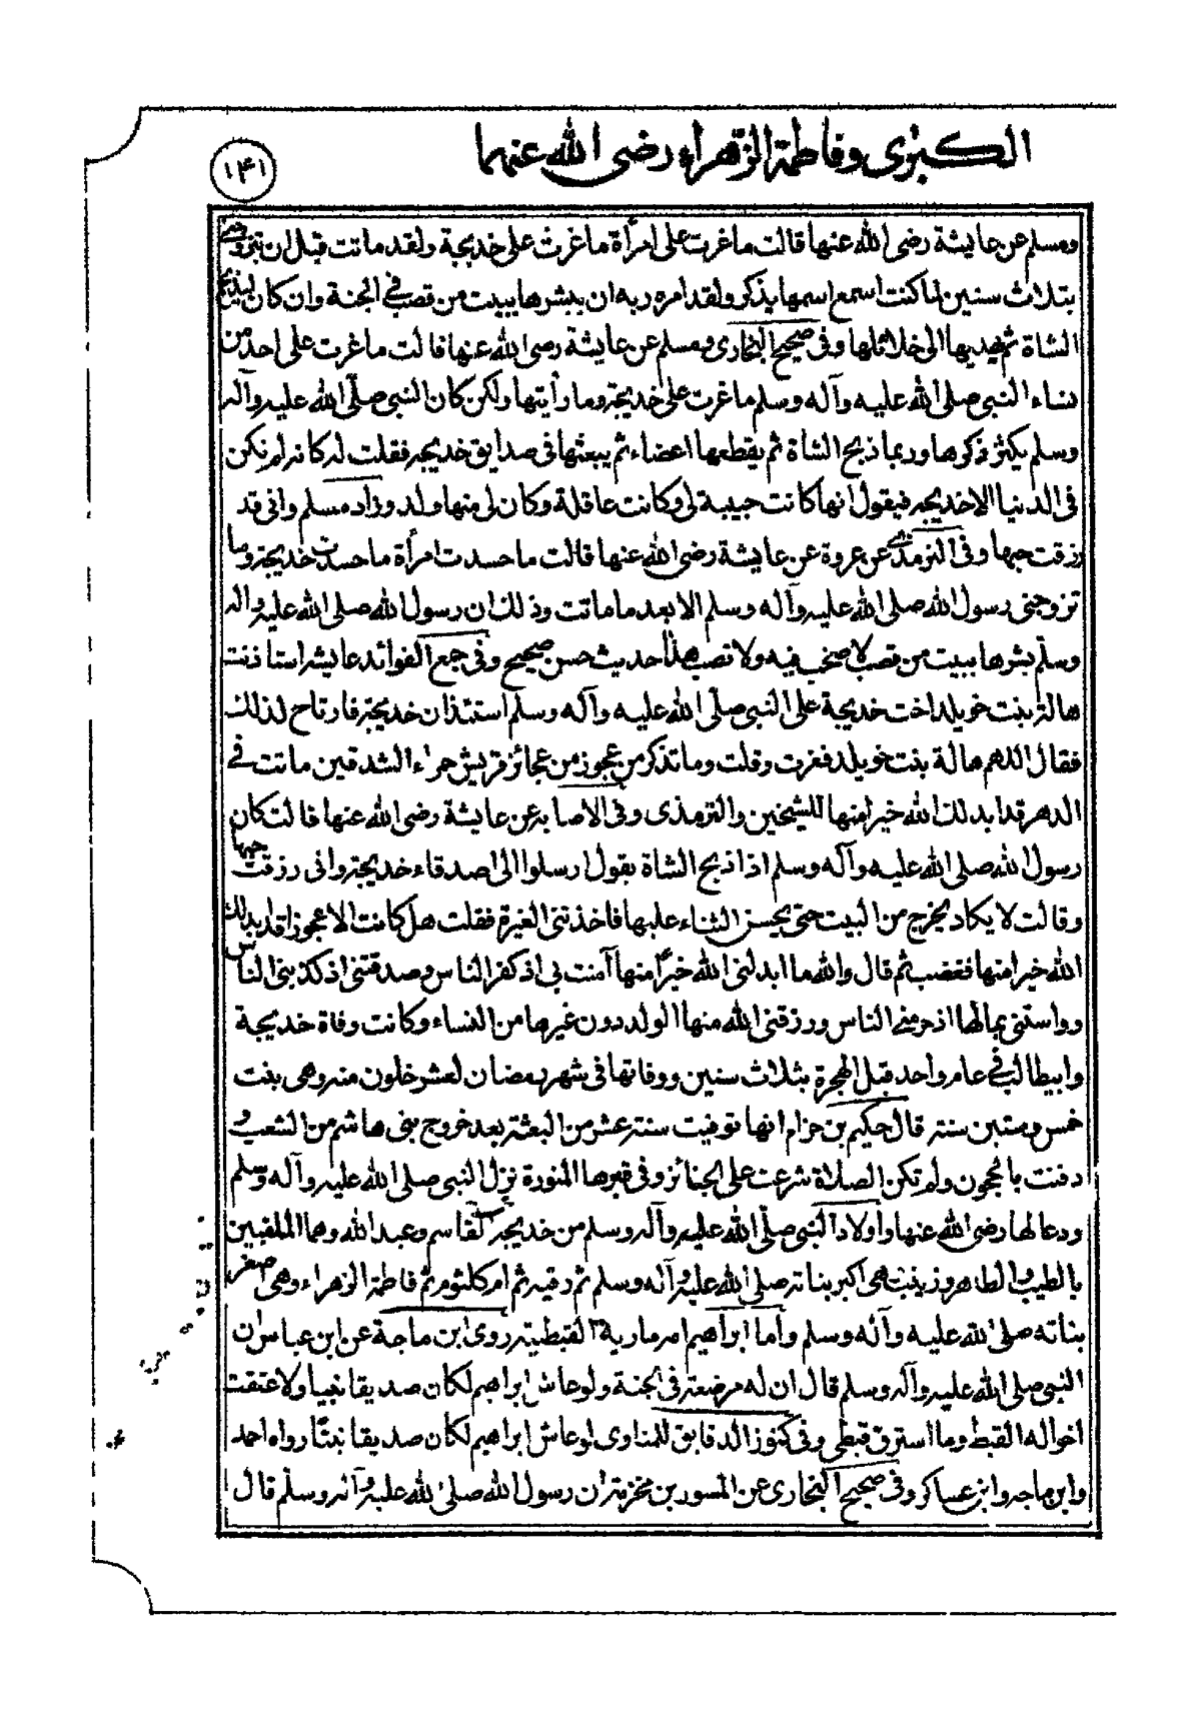 الكبرى وفاطمة الزهراء رضى الله عنهما
١۴١
ومسلم عن عايشة رضى الله عنها قالت ماغرت على امرأة ماغرت على خديجة ولقد ماتت قبل ان يتزوجنى
بثلاث سنين لما كنت اسمع اسمها يذكر ولقد امره ربه ان يبشرها ببيت من قصب فى الجنة وان كان ليذبح
الشاة ثم يهديها الى خلائلها وفى صحيح البخارى ومسلم عن عايشة رضى الله عنها قالت ماغرت على احد من
نساء النبى صلى الله عليه وآله وسلم ماغرت على خديجة وما رأيتها ولكن كان النبى صلى الله عليه وآله
وسلم يكثر ذكرها وربما ذبح الشاة ثم يقطعها اعضاء ثم يبعثها فى صدايق خديجه فقلت له كانه لم تكن
فى الدنيا الا خديجه فيقول انها كانت حبيبة لى وكانت عاقلة وكان لى منها ولد وزاد مسلم وانى قد
رزقت حبها وفى الترمذى عن عروة عن عايشة رضى الله عنها قالت ما حسدت امرأة ما حسدت خديجة وما
تزوجنى رسول الله صلى الله عليه وآله وسلم الا بعد ما ماتت وذلك ان رسول الله صلى الله عليه واله
وسلم بشرها ببيت من قصب لا صخب فيه ولا نصب هذا حديث حسن صحيح وفى جمع الفوائد عايشه استاذنت
هالة بنت خويلد اخت خديجة على النبى صلى الله عليه وآله وسلم استئذان خديجة فارتاح لذلك
فقال اللهم هالة بنت خويلد فغرت وقلت وما تذكر من عجوز من عجائز قريش حمراء الشدقين ماتت فى
الدهر قد ابدلك الله خيرا منها للشيخين والترمذى وفى الاصابه عن عايشة رضى الله عنها قالت كان
رسول الله صلى الله عليه وآله وسلم اذا ذبح الشاة يقول ارسلوا الى اصدقاء خديجة وانى رزقت حبها
وقالت لا يكاد يخرج من البيت حتى يحسن الثناء عليها فاخذتنى الغيرة فقلت هل كانت الا عجوزا قد ابدلك
الله خيرا منها فغضب ثم قال والله ما ابدلنى الله خيرا منها آمنت بى اذ كفر الناس وصدقتنى اذ كذبنى الناس
وواستنى بمالها اذ حرمنى الناس ورزقنى الله منها الولد دون غيرها من النساء وكانت وفاة خديجة
وابيطالب فى عام واحد قبل الهجرة بثلاث سنين ووفاتها فى شهر رمضان لعشر خلون منه وهى بنت
خمس وستين سنه قال حكيم بن حزام انها توفيت سنة عشر من البعثة بعد خروج بنى هاشم من الشعب و
دفنت بالحجون ولم تكن الصلاة شرعت على الجنائز وفى قبرها المنورة نزل النبى صلى الله عليه وآله وسلم
ودعا لها رضى الله عنها واولاد النبى صلى الله عليه وآله وسلم من خديجه القاسم وعبد الله وهما الملقبين
بالطيب والطاهر وزينب هى اكبر بناته صلى الله عليه وآله وسلم ثم رقيه ثم ام كلثوم ثم فاطمة الزهراء وهى اصغر
بناته صلى الله عليه وآله وسلم واما ابراهيم امه مارية القبطيته روى ابن ماجة عن ابن عباس ان
النبى صلى الله عليه وآله وسلم قال ان له مرضعة فى الجنة ولو عاش ابراهيم لكان صديقا نبيا ولا عتقت
اخواله القبط وما استرق قبطى وفى كنوز الدقايق للمناوى لو عاش ابراهيم لكان صديقا نبيا رواه احمد
وابن ماجه وابن عساكر وفى صحيح البخارى عن المسور بن مخرمة ان رسول الله صلى الله عليه وآله وسلم قال